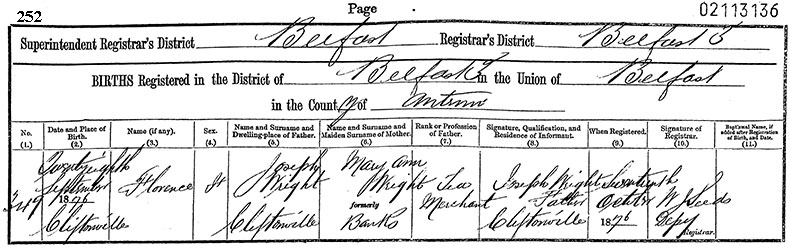 252 Page 02113136
Superintendent Registrar's District Belfast Registrar's District Belfast 3
BIRTHS Registered in the District of Belfast 3 in the Union of Belfast
in the County of Antrim
No. (1.) Date and Place of Birth. (2.) Name (if any). (3.) Sex. (4.) Name and Surname and Dwelling-place of Father. (5.) Name and Surname and Maiden Surname of Mother. (6.) Rank or Profession of Father. (7.) Signature, Qualification, and Residence of Informant. (8.) When Registered. (9.) Signature of Registrar. (10.) Baptismal Name, if added after Registration of Birth, and Date. (11.)
Twentyeighth Joseph Mary Ann
September Florence F Wright Wright Tea Joseph Wright Seventeenth
349 1876 formerly Merchant Father October W J Seeds
Cliftonville Cliftonville Banks Cliftonville 1876 Depy
Registrar.